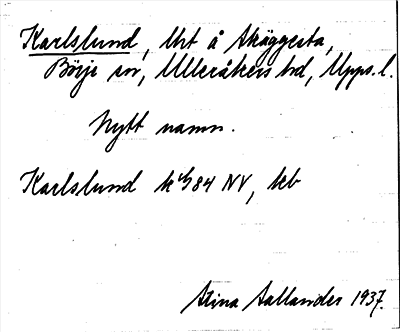 Karlslund, lht å Skäggesta,
Börje sn, Ulleråkers hd, Upps. l.
Nytt namn.
Karlslund k 84 NV, kb
Stina Sallander 1937.